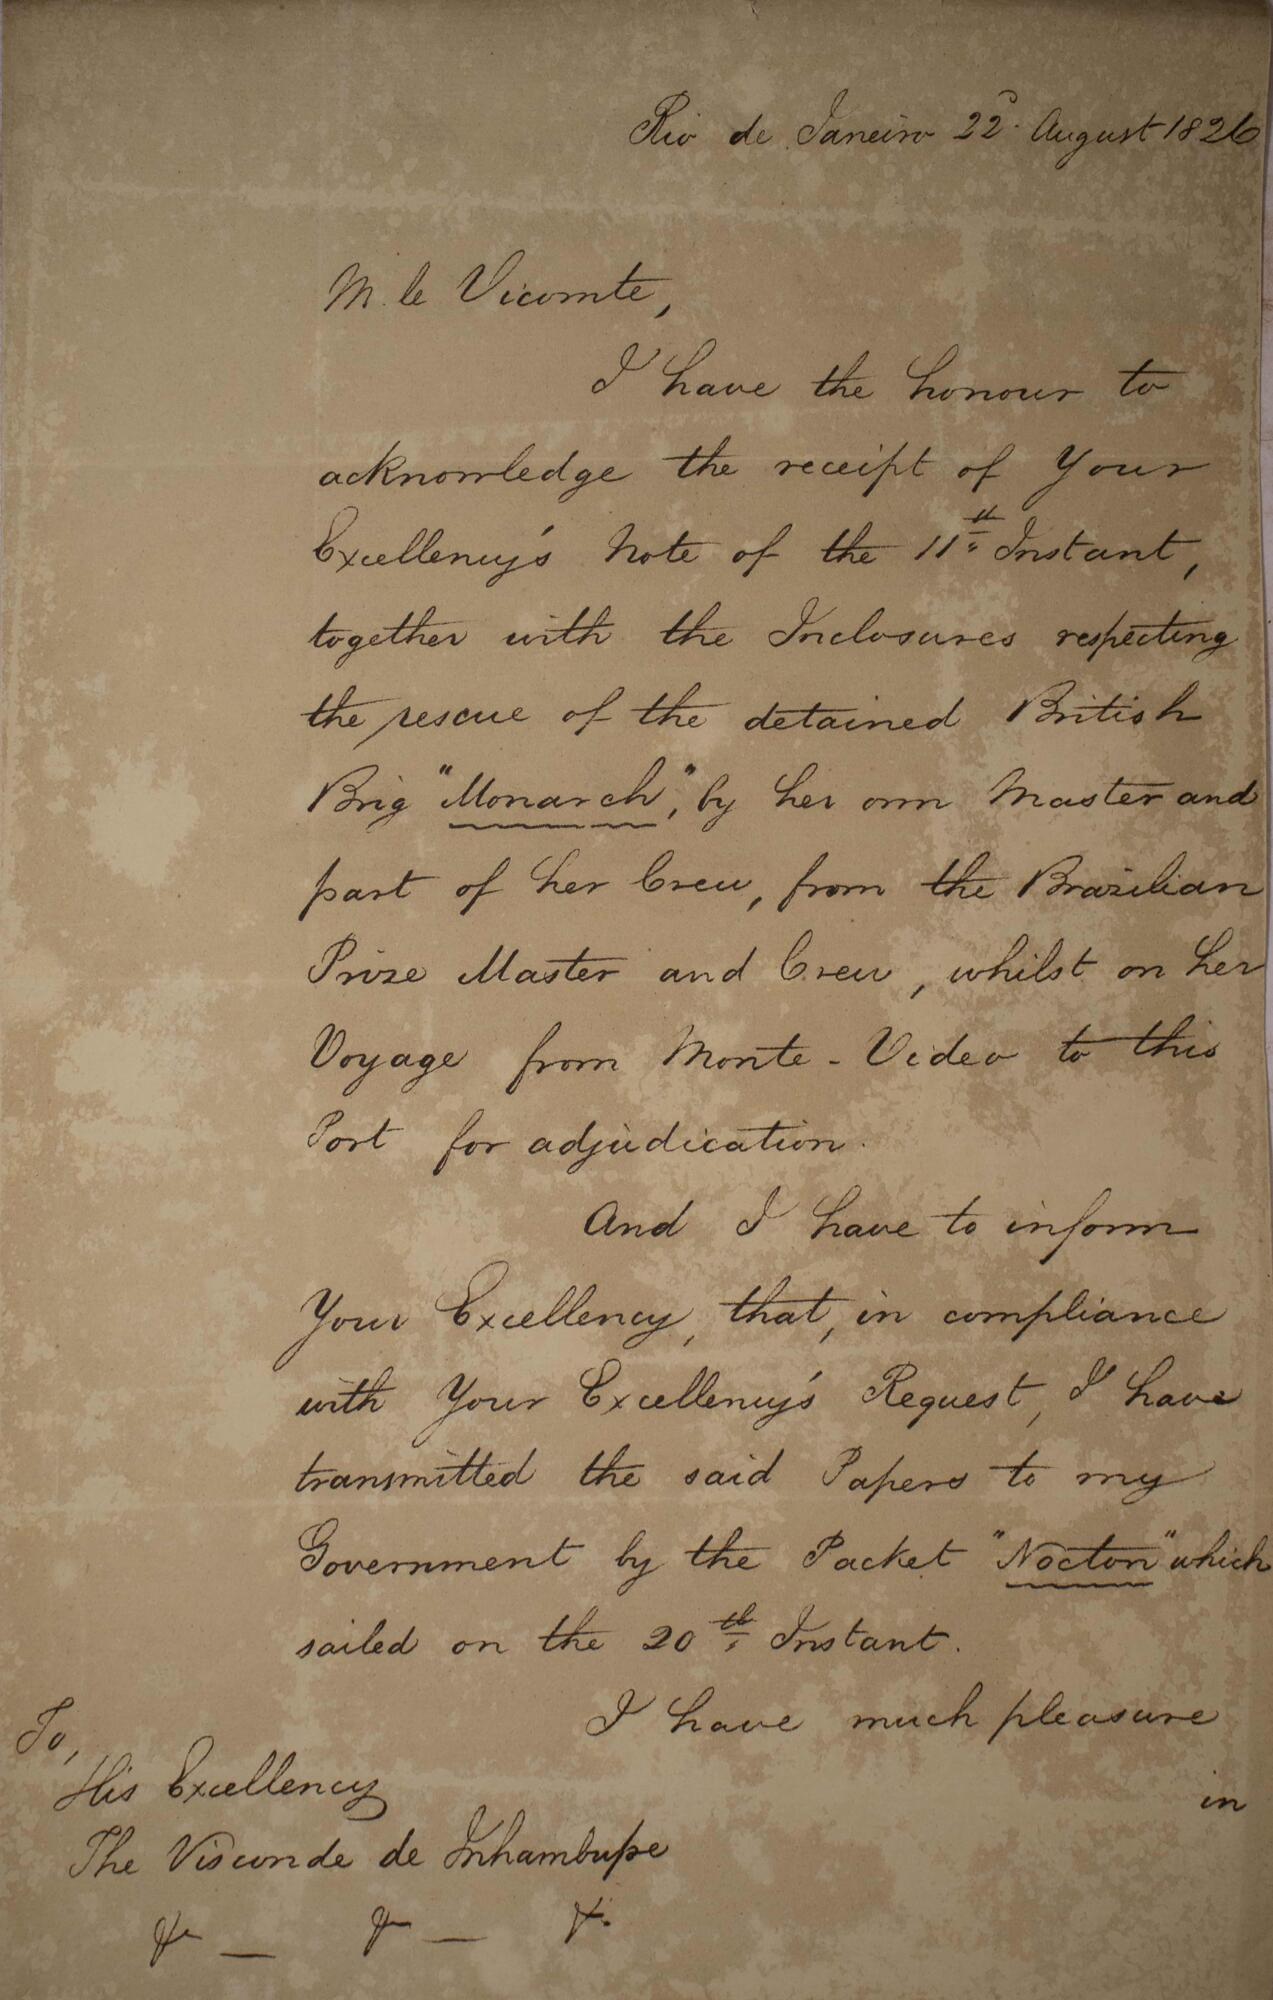 Rio de Janeiro 22d. August 1826
M. le Vicomte,
I have the honour to
acknowledge the receipt of Your
Excellency's Note of the 11th Instant,
together with the Inclosures respecting
the rescue of the detained British
Brig "Monarch", by her own Master and
part of her Crew, from the Brazilian
Prize Master and Crew, whilst on her
Voyage from Monte-Video to this
Port for adjudication.
And I have to inform
Your Excellency, that, in compliance
with Your Excellency's Request, I have
transmitted the said Papers to my
Government by the Packet "Nocton" which
sailed on the 20th Instant.
I have much pleasure
in
To,
His Excellency
The Visconde de Inhambupe
&c — &c — &c.